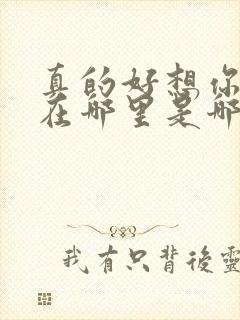 真的好想你
在哪里是哪
我有只背後靈